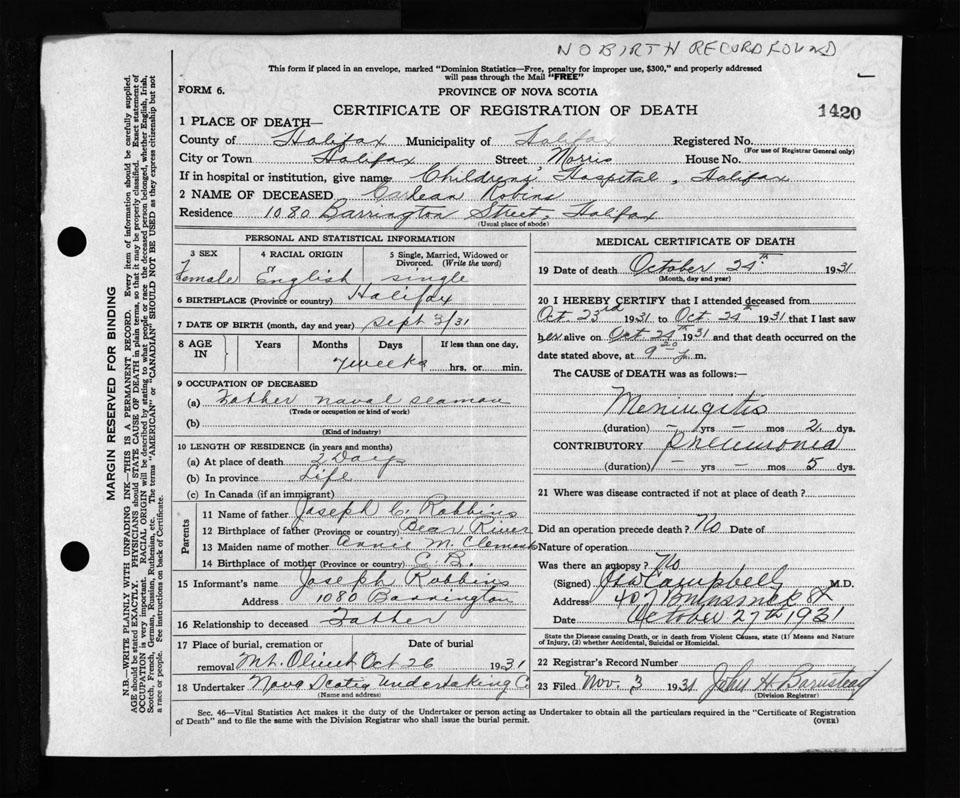 NO BIRTH RECORD FOUND
This form if placed in an envelope, marked "Dominion Statistics—Free, penalty for improper use, $300," and properly addressed
will pass through the Mail "FREE"
FORM 6. PROVINCE OF NOVA SCOTIA
CERTIFICATE OF REGISTRATION OF DEATH 1420
1 PLACE OF DEATH—
County of Halifax Municipality of Halifax Registered No.
(For use of Registrar General only)
City or Town Halifax Street Morris House No.
If in hospital or institution, give name Childrens' Hospital, Halifax
2 NAME OF DECEASED Robins
Residence 1080 Barrington Street, Halifax
(Usual place of abode)
PERSONAL AND STATISTICAL INFORMATION
3 SEX 4 RACIAL ORIGIN 5 Single, Married, Widowed or
Divorced. (Write the word)
Female English single
6 BIRTHPLACE (Province or country) Halifax
7 DATE OF BIRTH (month, day and year) Sept 3/31
8 AGE IN Years Months Days If less than one day,
7 weeks hrs. or min.
9 OCCUPATION OF DECEASED
(a) Father naval seaman
(Trade or occupation or kind of work)
(b)
(Kind of industry)
10 LENGTH OF RESIDENCE (in years and months)
(a) At place of death 2 Days
(b) In province Life
(c) In Canada (if an immigrant)
Parents
11 Name of father Joseph C. Robbins
12 Birthplace of father (Province or country) Bear River
13 Maiden name of mother Annie M. Clements
14 Birthplace of mother (Province or country) C. B.
15 Informant's name Joseph Robbins
Address 1080 Barrington
16 Relationship to deceased Father
17 Place of burial, cremation or Date of burial
removal Mt. Olivet Oct 26 1931
18 Undertaker Nova Scotia Undertaking Co
(Name and address)
MEDICAL CERTIFICATE OF DEATH
19 Date of death October 24th 1931
(Month, day and year)
20 I HEREBY CERTIFY that I attended deceased from
Oct. 23rd 1931 to Oct 24th 1931 that I last saw
her alive on Oct 24th 1931 and that death occurred on the
date stated above, at 9 20 p. m.
The CAUSE of DEATH was as follows:—
Meningitis
(duration) – yrs – mos 2 dys.
CONTRIBUTORY Pneumonia
(duration) – yrs – mos 5 dys.
21 Where was disease contracted if not at place of death?
Did an operation precede death? No Date of
Nature of operation
Was there an autopsy? No
(Signed) Campbell M.D.
Address 407 Brunswick St
Date October 27th 1931
State the Disease causing Death, or in death from Violent Causes, state (1) Means and Nature
of Injury, (2) whether Accidental, Suicidal or Homicidal.
22 Registrar's Record Number
23 Filed Nov. 3 1931 John H Barnstead
(Division Registrar)
Sec. 46—Vital Statistics Act makes it the duty of the Undertaker or person acting as Undertaker to obtain all the particulars required in the "Certificate of Registration
of Death" and to file the same with the Division Registrar who shall issue the burial permit.
(OVER)
MARGIN RESERVED FOR BINDING
N.B.—WRITE PLAINLY WITH UNFADING INK—THIS IS A PERMANENT RECORD. Every item of information should be carefully supplied.
AGE should be stated EXACTLY. PHYSICIANS should STATE CAUSE OF DEATH in plain terms, so that it may be properly classified. Exact statement of
OCCUPATION is very important. RACIAL ORIGIN will be described by stating to what people or race the deceased person belonged, whether English, Irish,
Scotch, French, German, Russian, Ruthenian, etc. The terms "AMERICAN" or "CANADIAN" SHOULD NOT BE USED as they express citizenship but not
a race or people. See instructions on back of Certificate.